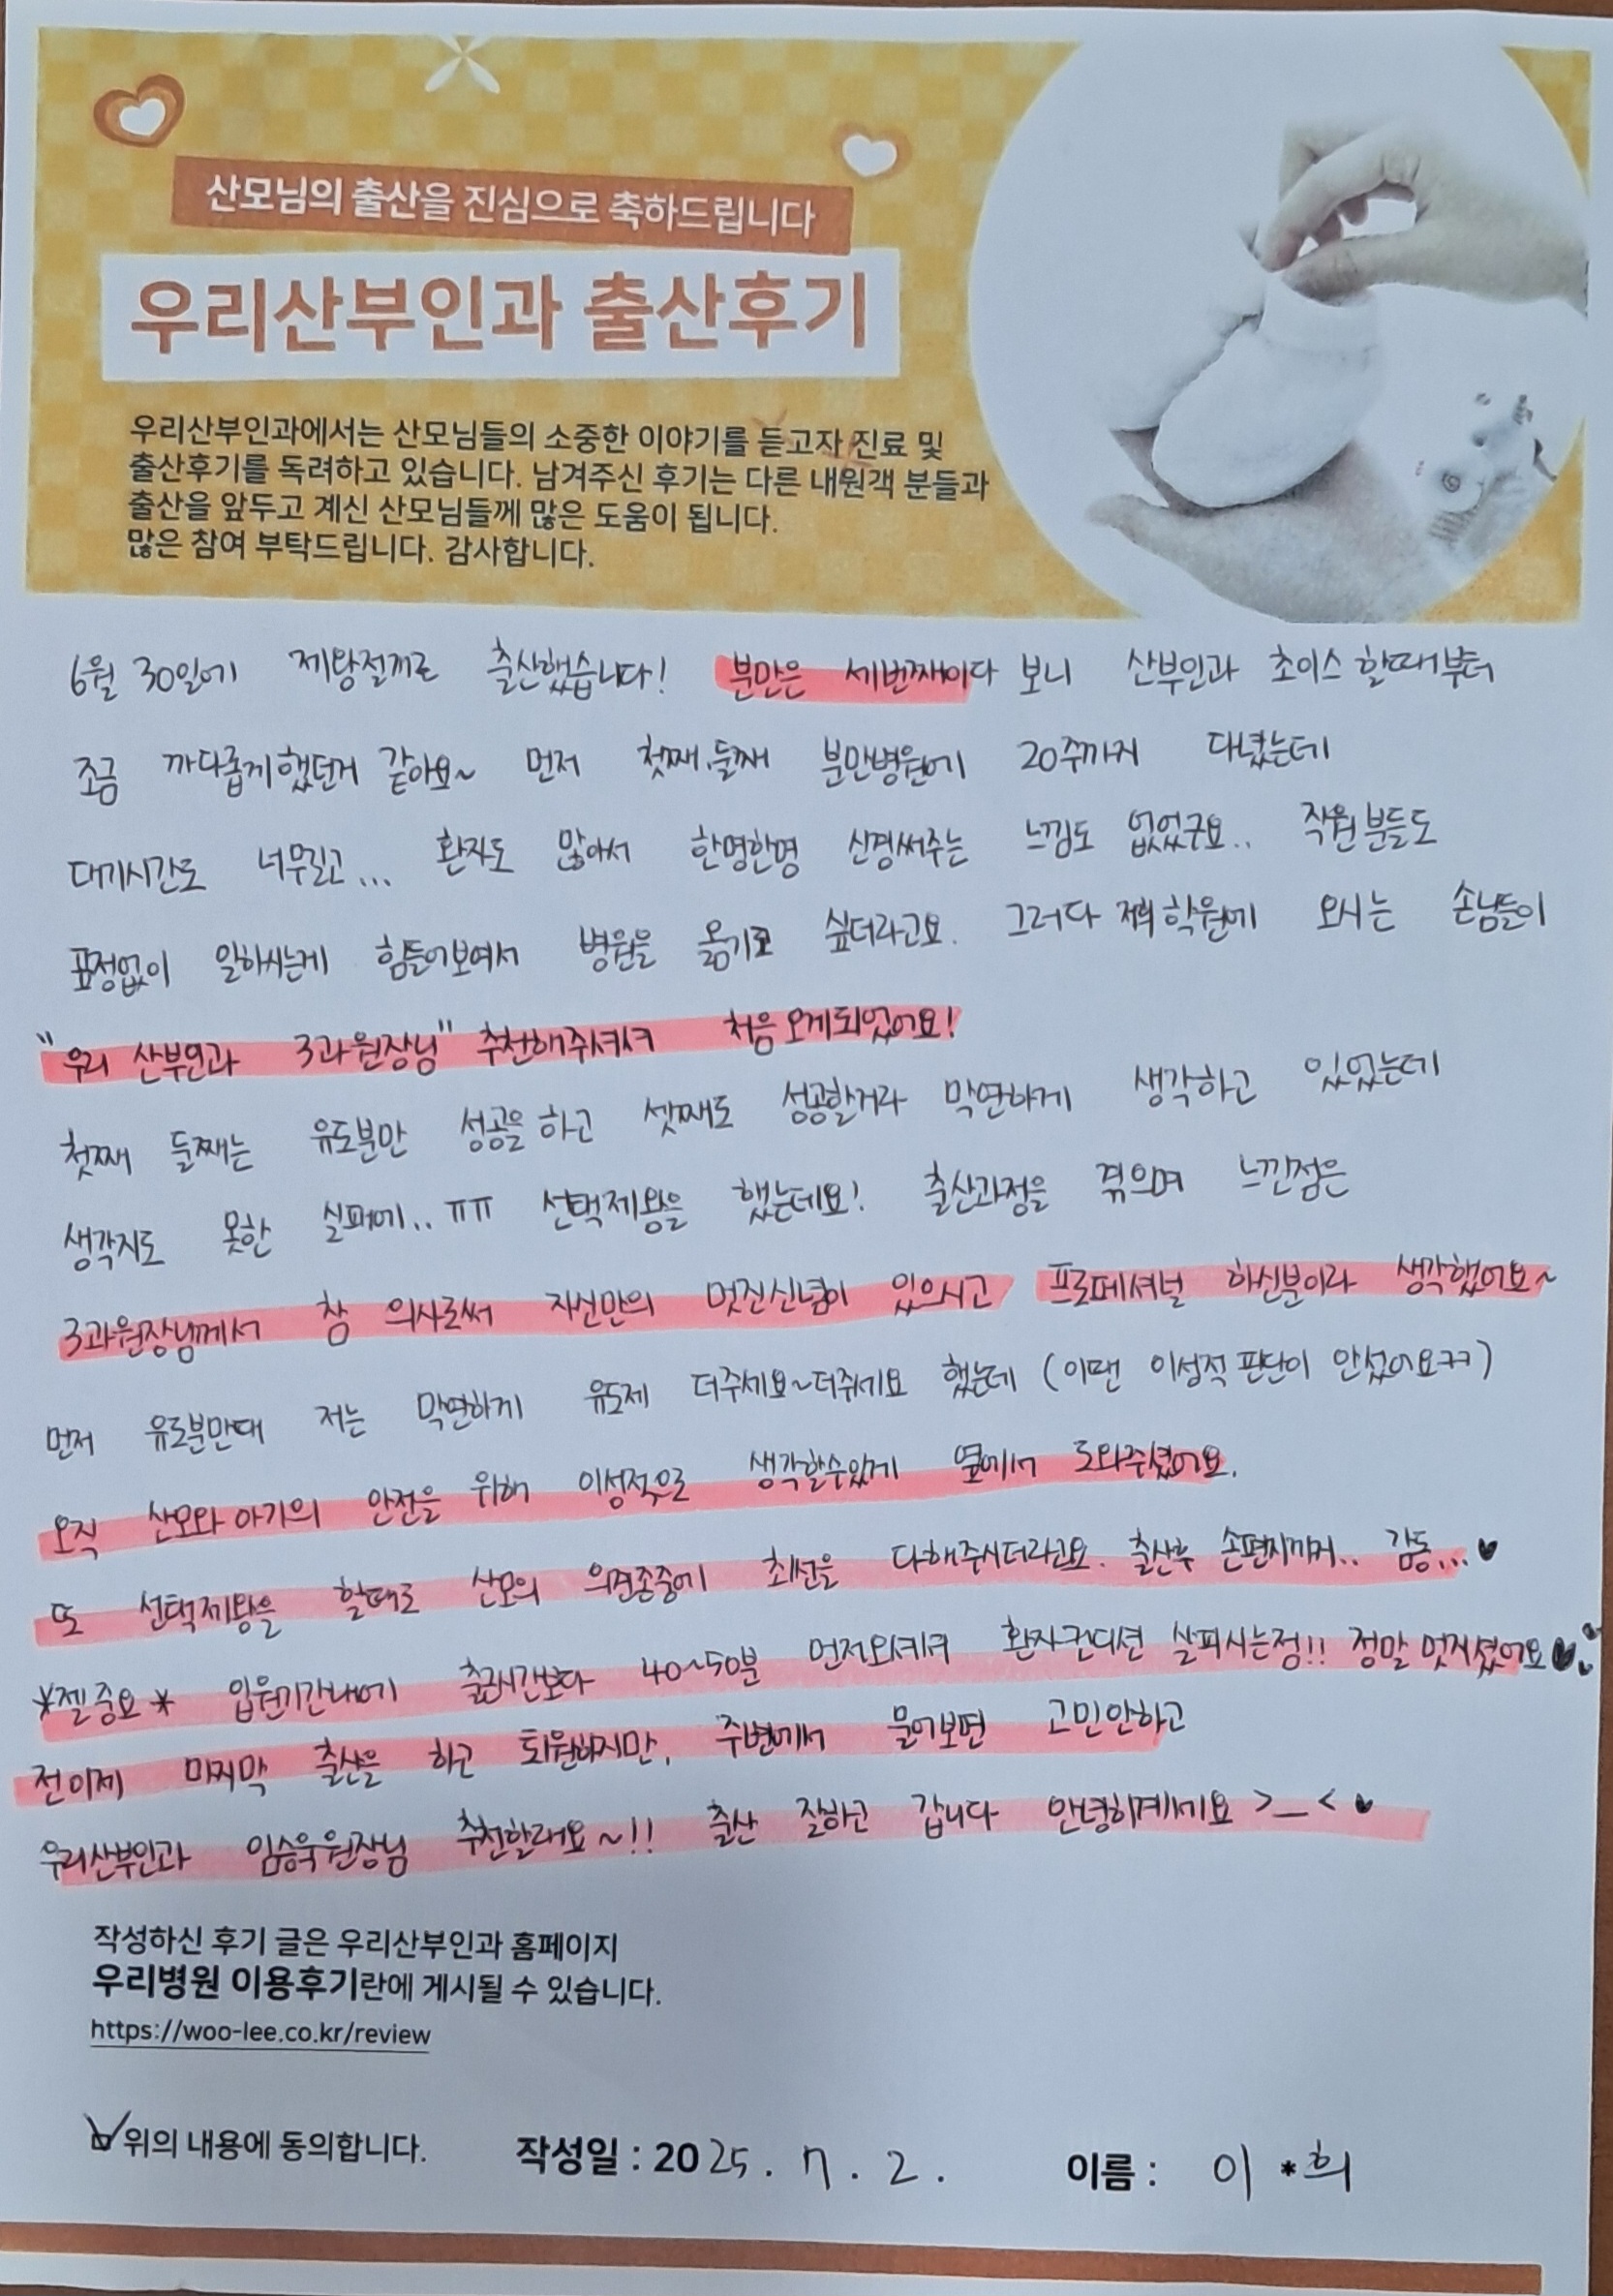 산모님의 출산을 진심으로 축하드립니다
우리산부인과 출산후기
우리산부인과에서는 산모님들의 소중한 이야기를 듣고자 진료 및
출산후기를 독려하고 있습니다. 남겨주신 후기는 다른 내원객 분들과
출산을 앞두고 계신 산모님들께 많은 도움이 됩니다.
많은 참여 부탁드립니다. 감사합니다.
6월 30일에 제왕절개로 출산했습니다! 분만은 세번째이다 보니 산부인과 초이스 할때부터
조금 까다롭게했던거 같아요~ 먼저 첫째,둘째 분만병원에 20주까지 다녔는데
대기시간도 너무길고... 환자도 많아서 한명한명 신경써주는 느낌도 없었구요.. 직원분들도
표정없이 일하시는게 힘들어보여서 병원을 옮기고 싶더라고요. 그러다 저희 학원에 오시는 손님들이
"우리 산부인과 3과원장님" 추천해주셔서 처음오게되었어요!
첫째 둘째는 유도분만 성공을하고 셋째도 성공할거라 막연하게 생각하고 있었는데
생각지도 못한 실패에..ㅠㅠ 선택제왕을 했는데요! 출산과정을 겪으며 느낀점은
3과원장님께서 참 의사로써 자신만의 멋진신념이 있으시고 프로페셔널 하신분이라 생각했어요~
먼저 유도분만때 저는 막연하게 유도제 더주세요~더주세요 했는데 (이땐 이성적판단이 안섰어요ㅋㅋ)
오직 산모와아기의 안전을 위해 이성적으로 생각할수있게 옆에서 도와주셨어요.
또 선택제왕을 할때도 산모의 의견존중에 최선을 다해주시더라고요. 출산후 손편지까지.. 감동...♥
*젤중요* 입원기간내에 출근시간보다 40~50분 먼저오셔서 환자컨디션 살피시는점!! 정말 멋지셨어요♥
전이제 마지막 출산을 하고 퇴원하지만, 주변에서 물어보면 고민안하고
우리산부인과 임승욱원장님 추천할래요~!! 출산 잘하고 갑니다 안녕히계세요 >_< ♥
작성하신 후기 글은 우리산부인과 홈페이지
우리병원 이용후기란에 게시될 수 있습니다.
https://woo-lee.co.kr/review
위의 내용에 동의합니다. 작성일 : 2025. 7. 2. 이름 : 이 *희